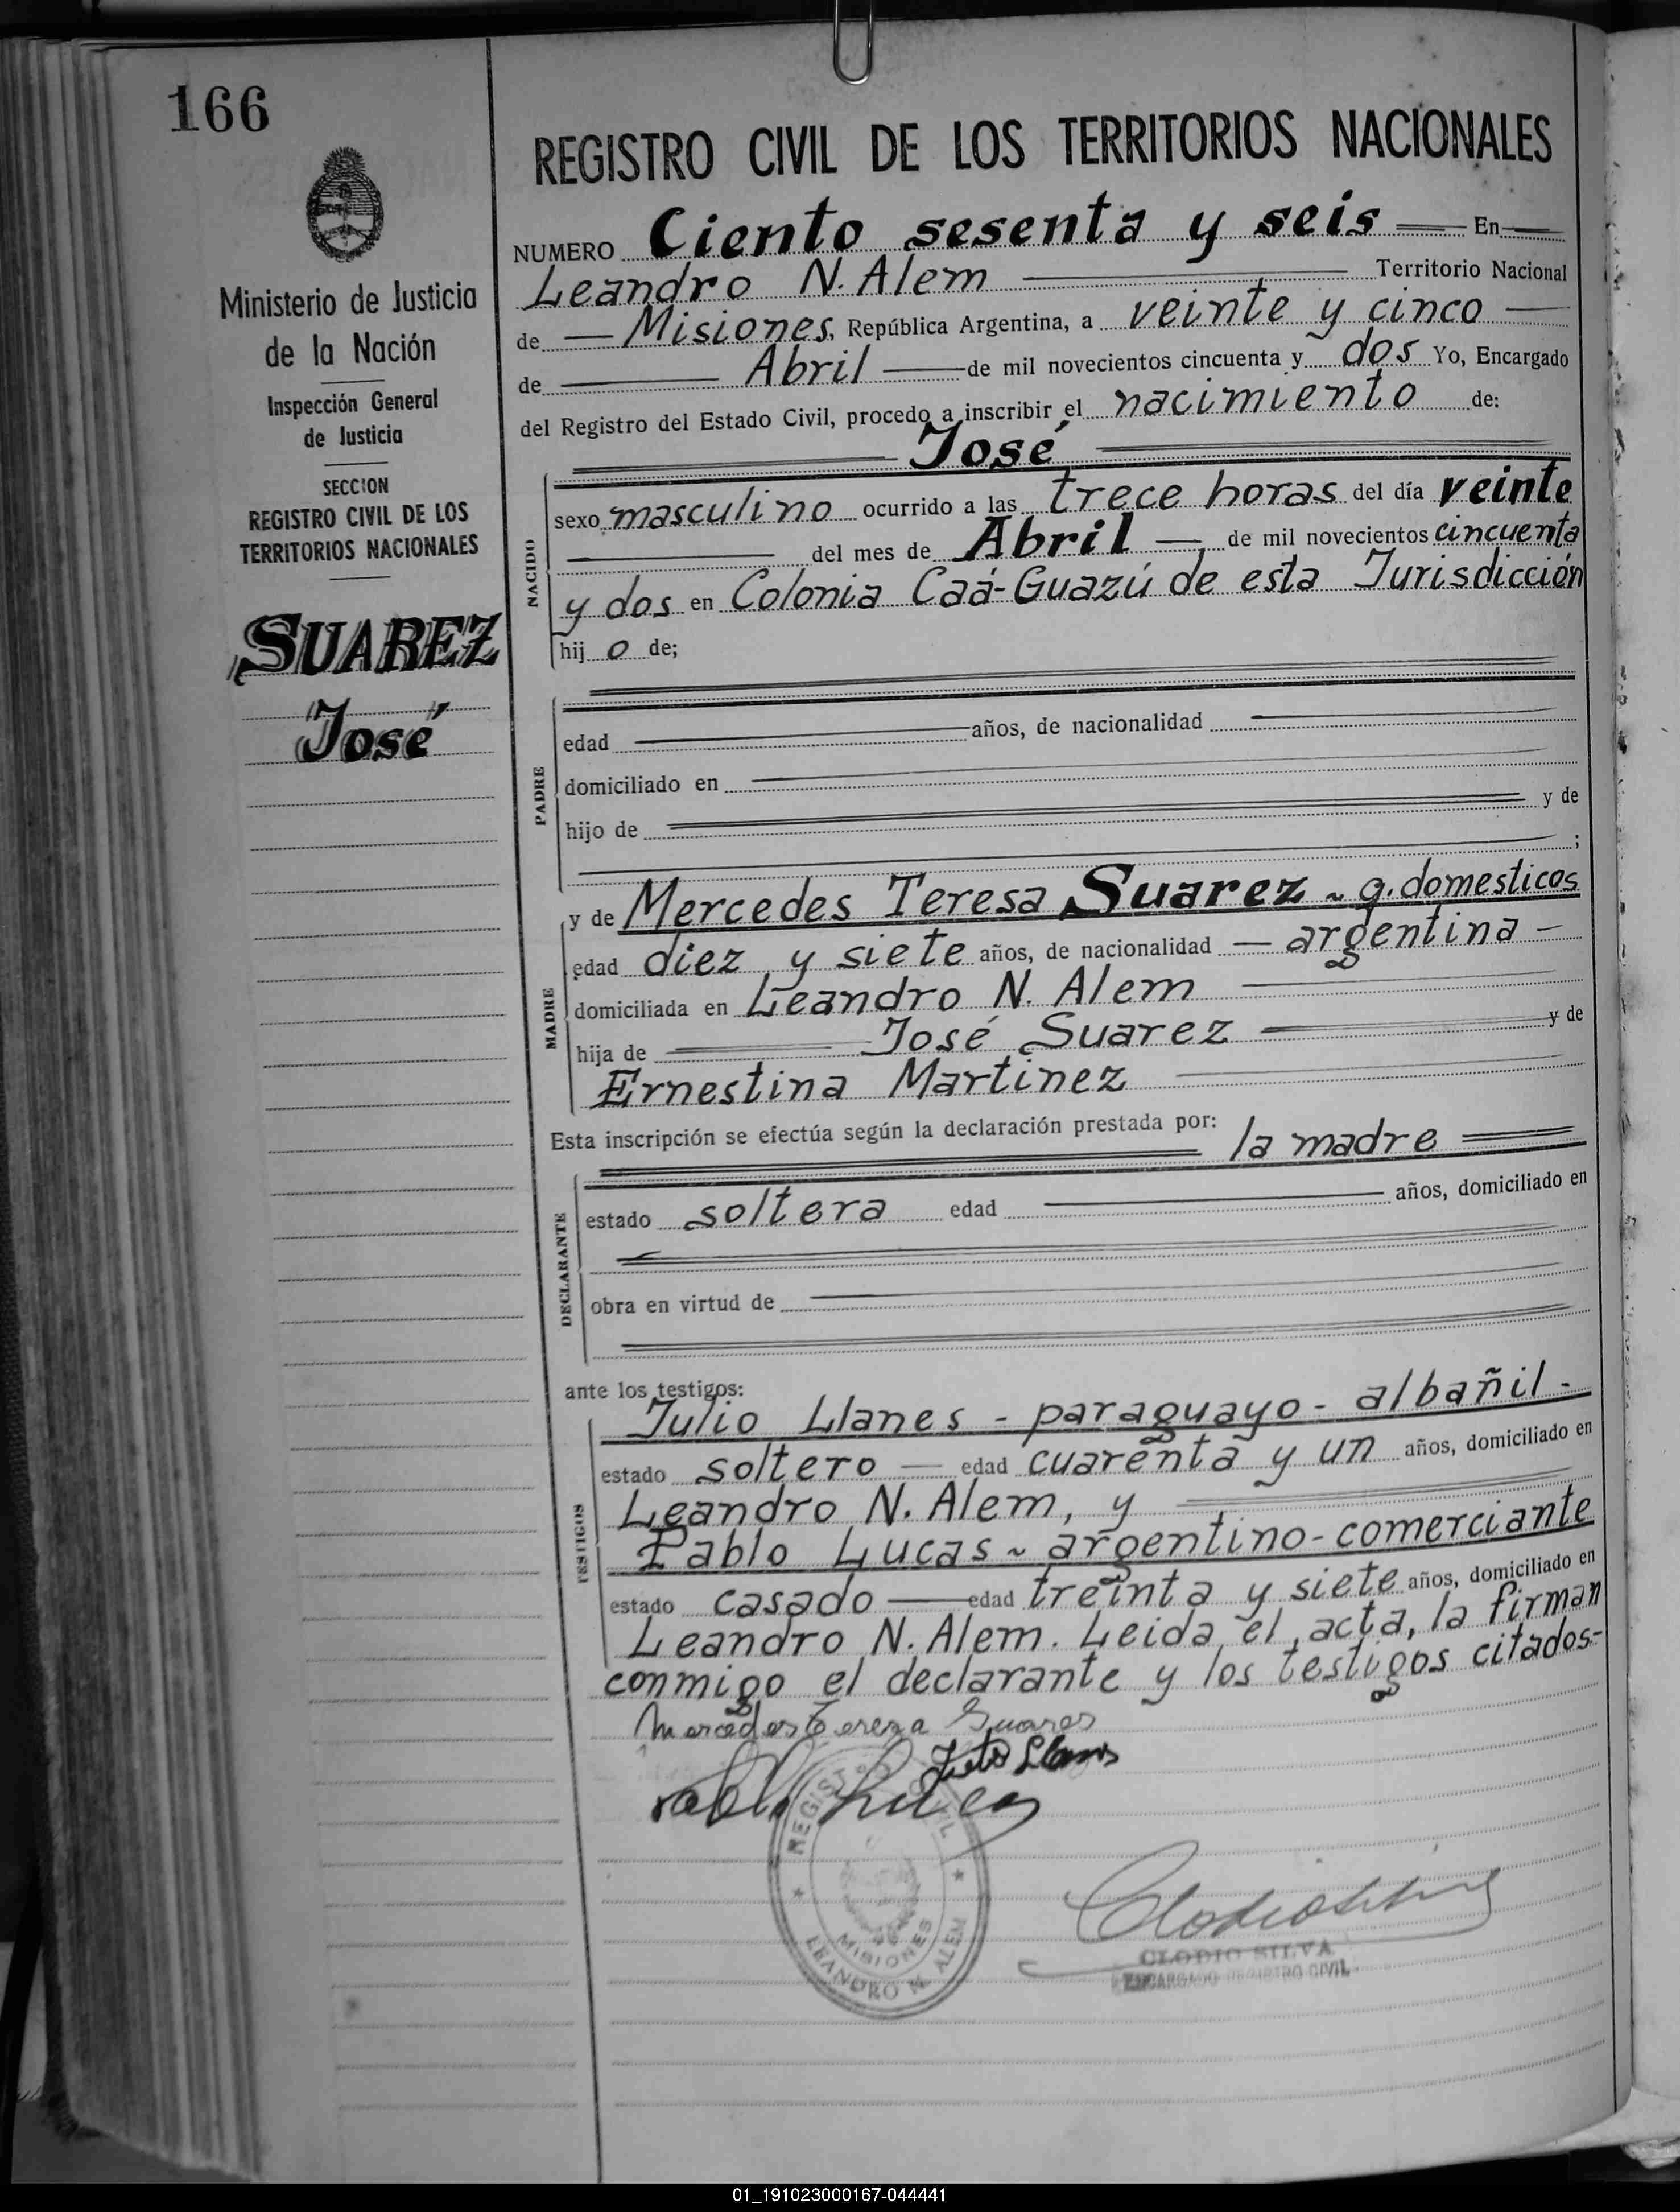 166
Ministerio de Justicia
de la Nación
Inspección General
de Justicia
SECCION
REGISTRO CIVIL DE LOS
TERRITORIOS NACIONALES
SUAREZ
José
REGISTRO CIVIL DE LOS TERRITORIOS NACIONALES
NUMERO Ciento sesenta y seis En
Leandro N. Alem Territorio Nacional
de Misiones, República Argentina, a veinte y cinco
de Abril de mil novecientos cincuenta y dos Yo, Encargado
del Registro del Estado Civil, procedo a inscribir el nacimiento de:
José
NACIDO
sexo masculino ocurrido a las trece horas del día veinte
del mes de Abril de mil novecientos cincuenta
y dos en Colonia Caá-Guazú de esta Jurisdicción
hij o de;
PADRE
edad años, de nacionalidad
domiciliado en
hijo de y de
;
MADRE
y de Mercedes Teresa Suarez ~ q. domesticos
edad diez y siete años, de nacionalidad argentina
domiciliada en Leandro N. Alem
hija de José Suarez y de
Ernestina Martinez
Esta inscripción se efectúa según la declaración prestada por: la madre
DECLARANTE
estado soltera edad años, domiciliado en
obra en virtud de
ante los testigos:
TESTIGOS
Julio Llanes - paraguayo - albañil -
estado soltero edad cuarenta y un años, domiciliado en
Leandro N. Alem, y
Pablo Lucas ~ argentino - comerciante
estado casado edad treinta y siete años, domiciliado en
Leandro N. Alem. Leida el acta, la firman
conmigo el declarante y los testigos citados-
Mercedes Tereza Suares
Julio Llanes
Pablo Lucas
REGISTRO CIVIL
MISIONES
LEANDRO N. ALEM
CLODIO SILVA
ENCARGADO REGISTRO CIVIL
01_191023000167-044441